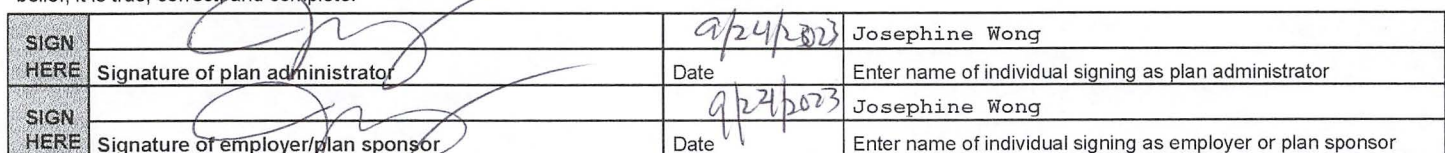 belief, it is true, correct, and complete.
SIGN HERE
9/24/2023 Josephine Wong
Signature of plan administrator Date Enter name of individual signing as plan administrator
SIGN HERE
9/24/2023 Josephine Wong
Signature of employer/plan sponsor Date Enter name of individual signing as employer or plan sponsor